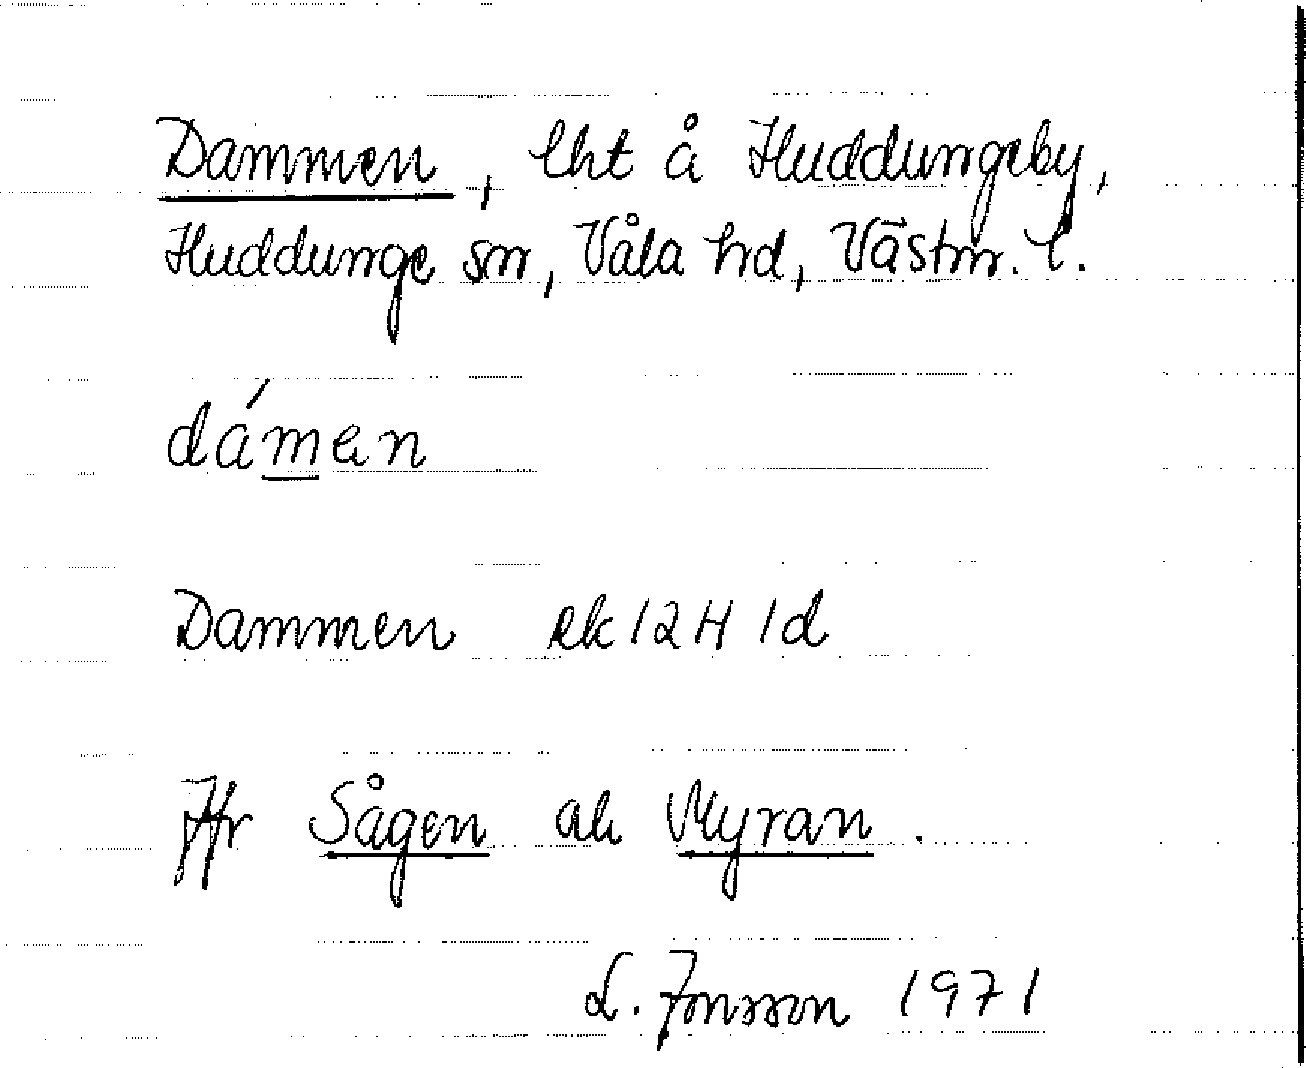 Dammen, lht å Huddungeby,
Huddunge sn, Våla hd, Västm. l.
dámen
Dammen ek 12H 1d
Jfr Sågen ah Myran.
L. Jonsson 1971